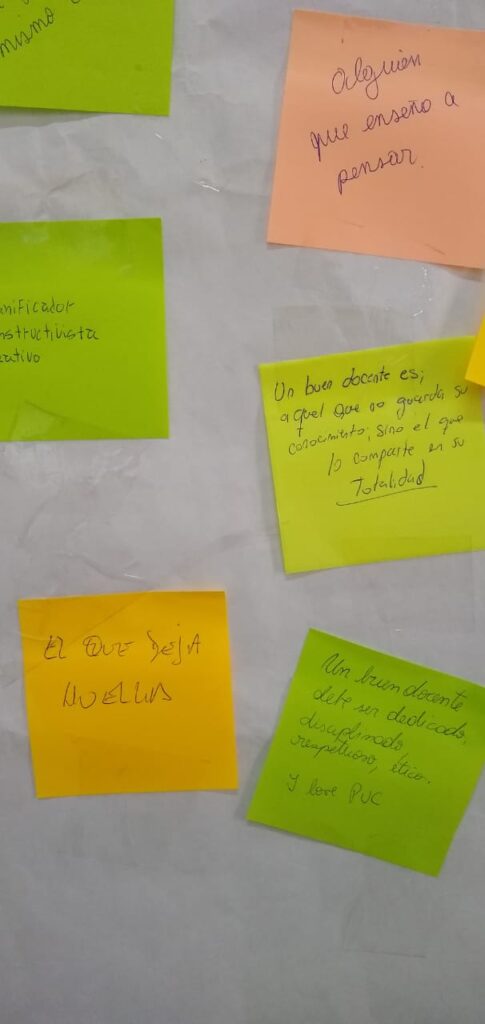 mismo
Alguien
que enseño a
pensar.
nificador
nstructivista
ativo
Un buen docente es;
aquel que no guarda su
conocimiento, sino el que
lo comparte en su
Totalidad
EL QUE DEJA
HUELLA
Un buen docente
debe ser dedicado,
disciplinado
respetuoso, ético.
I love PUC